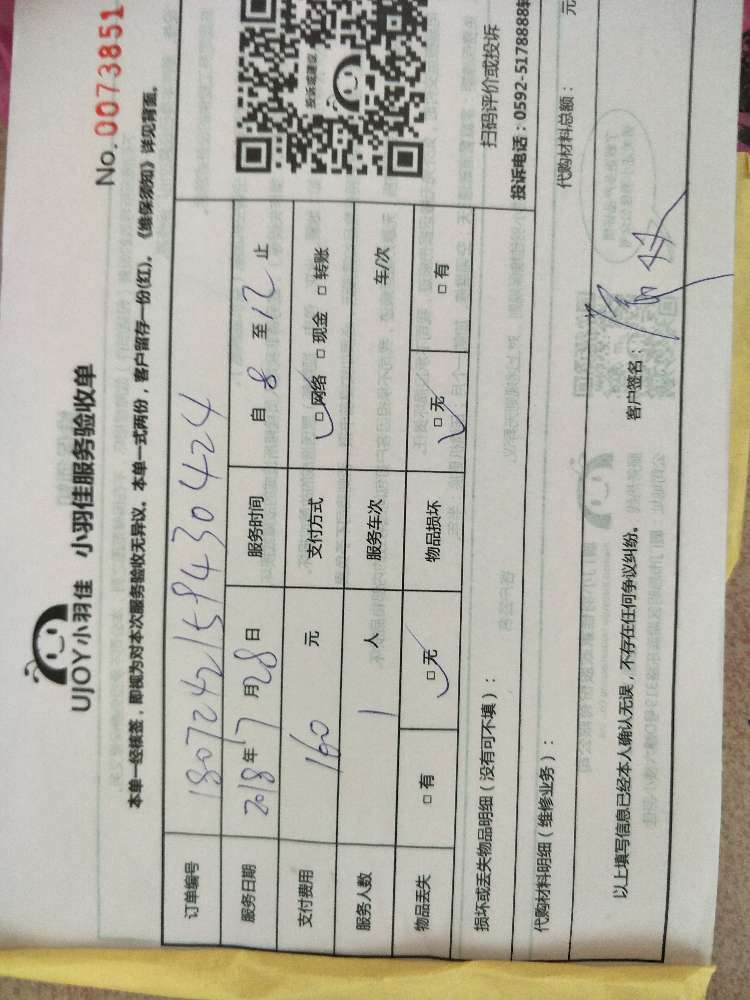 No. 0073851
UJOY小羽佳 小羽佳服务验收单
本单一经核签，即视为对本次服务验收无异议。本单一式两份，客户留存一份(红)。《维保须知》详见背面。
订单编号 180724215943 0424
服务日期 2018年7月28日 服务时间 自 8 至 12 止
支付费用 160 元 支付方式 □网络 □现金 □转账
服务人数 1 人 服务车次 车/次
物品丢失 □有 □无 物品损坏 □无 □有
投诉或建议
扫码评价或投诉
投诉电话：0592-5178888转
损坏或丢失物品明细（没有可不填）：
代购材料明细（维修业务）： 代购材料总额： 元
以上填写信息已经本人确认无误，不存在任何争议纠纷。 客户签名：